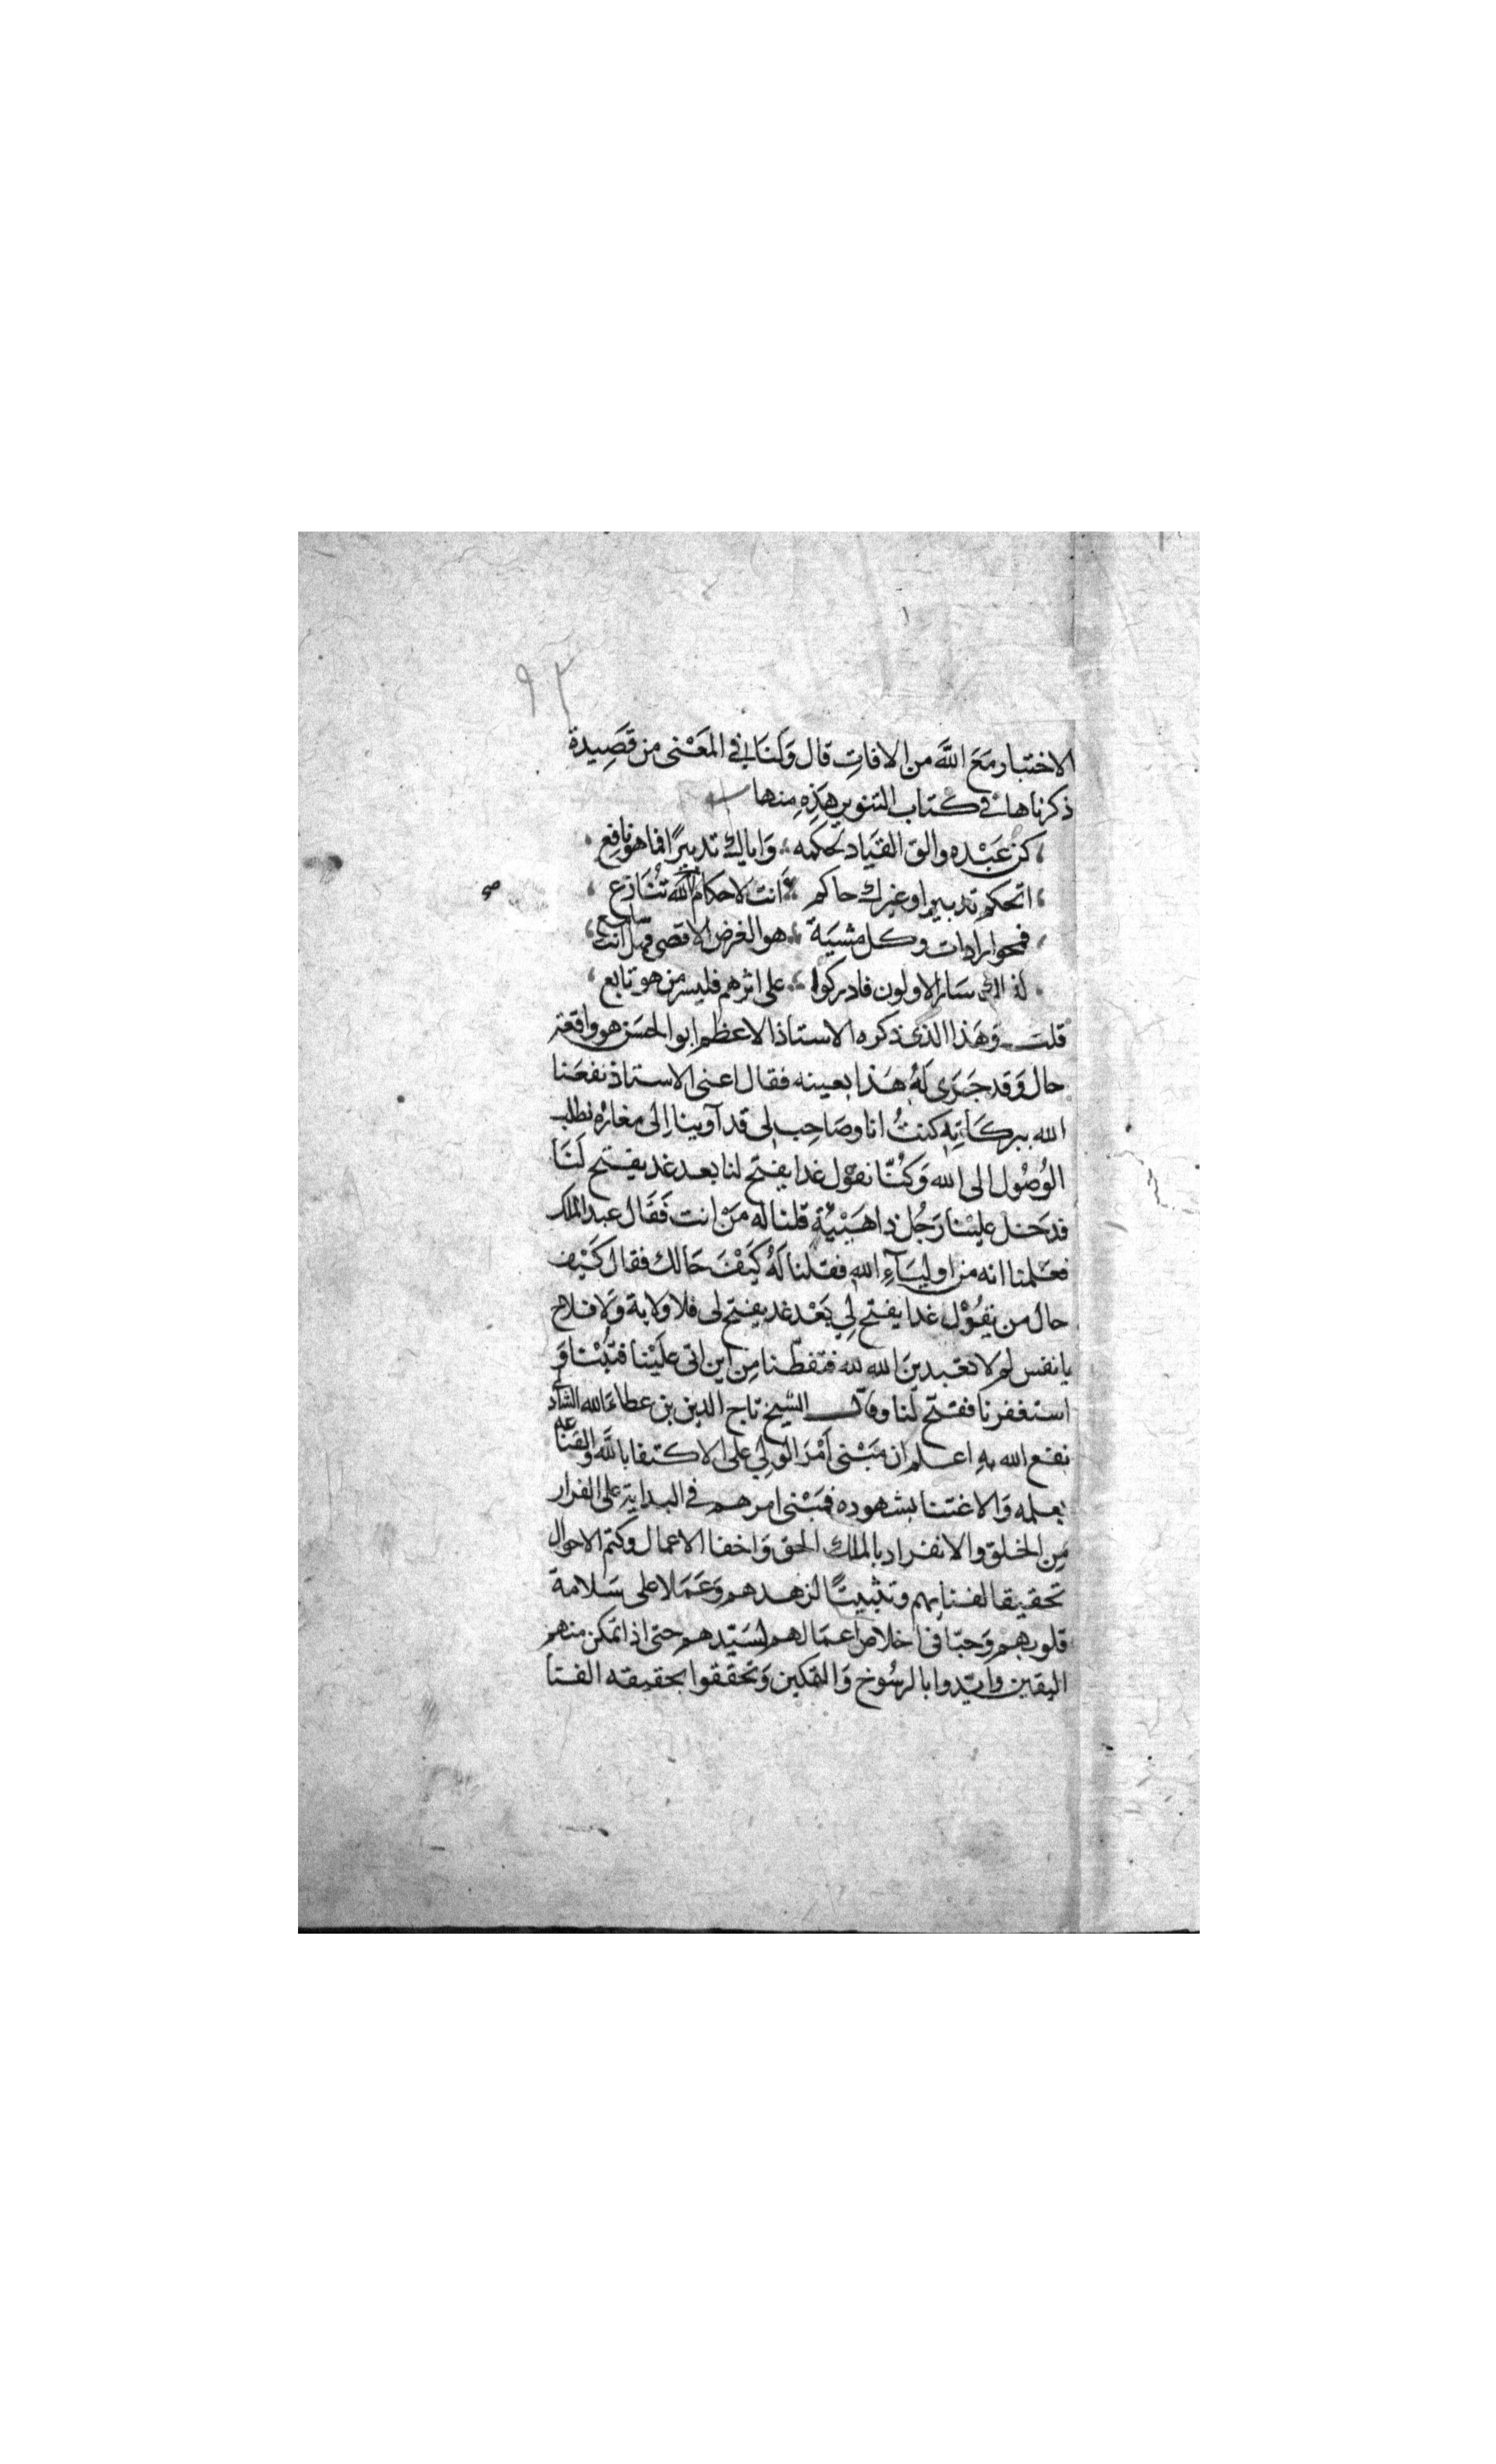 ٩٢
الاختبار مَعَ اللَّه من الافاتِ قال وَلنَا في المَعْنى من قَصَيدة
ذكرناها في كتاب التنوير هَذِه مِنها
كن عَبْده والق القيَاد لحكمه وَاياك تدبيرًا فما هو نافِع
اتحكم تدبيرا وغيرك حاكم ءَانت لاحكام الاله تُنَازع
فمحو ارادات وكل مشيَة هو الغرض الاقصى فهل انت سامع
لذالك سَار الاولون فادركوا على اثرهم فليسر من هو تابع
قلت وَهَذا الذى ذكره الاستاذ الاعظم ابو الحسَن هو واقعة
حال وَقد جَرَى لَهُ هَذا بعينه فقال اعنى الاستاذ نفعَنا
الله ببركاتِه كنتُ انا وصَاحِب لى قد آوينا اِلى مغارُه نطلب
الوُصُول الى الله وَكُنّا نقول غدا يفتح لنا بعد غد يفتح لَنَا
فدَخل علينَا رَجُل ذا هَيْبَة قلنا له مَنْ انت فَقَال عبد الملك
فعَلمنا انه من اوليَآءِ الله فقلنا لَهُ كيَفَ حَالك فقال كَيَف
حال من يقُوْل غدا يفتح لِي بَعْد غد يفتح لى فلا ولاية وَلا فلاح
يا نفس لم لا تعَبدينَ الله لله فتفطّنا مِن اين اتى علَيْنا فتُبْنا وَ
استغفرنا ففتح لنا وقال الشيخ تاج الدين بن عطاء الله الشاذلى
نفع الله بهِ اعلم ان مَبْنى اَمْر الوَلِي على الاكتفا باللَّه والقَناعه
بعلمه وَالاغتنا بشهوده فمَبْنى امرهم في البداية على الفرار
مِن الخلق والانفراد بالملك الحق وَاخفا الاعمال وكتم الاحوال
تحقيقا لفنايهم وتثبيتًا لزهدهم وَعَمَلا على سَلامة
قلوبهم وَحبّا فى اخلاص اعمَالهم لسَيّدهم حتى اذا تمكن منهم
اليقين وايّدوا بالرسُوخ وَالتمكين وَتحققوا بحقيقه الفنا